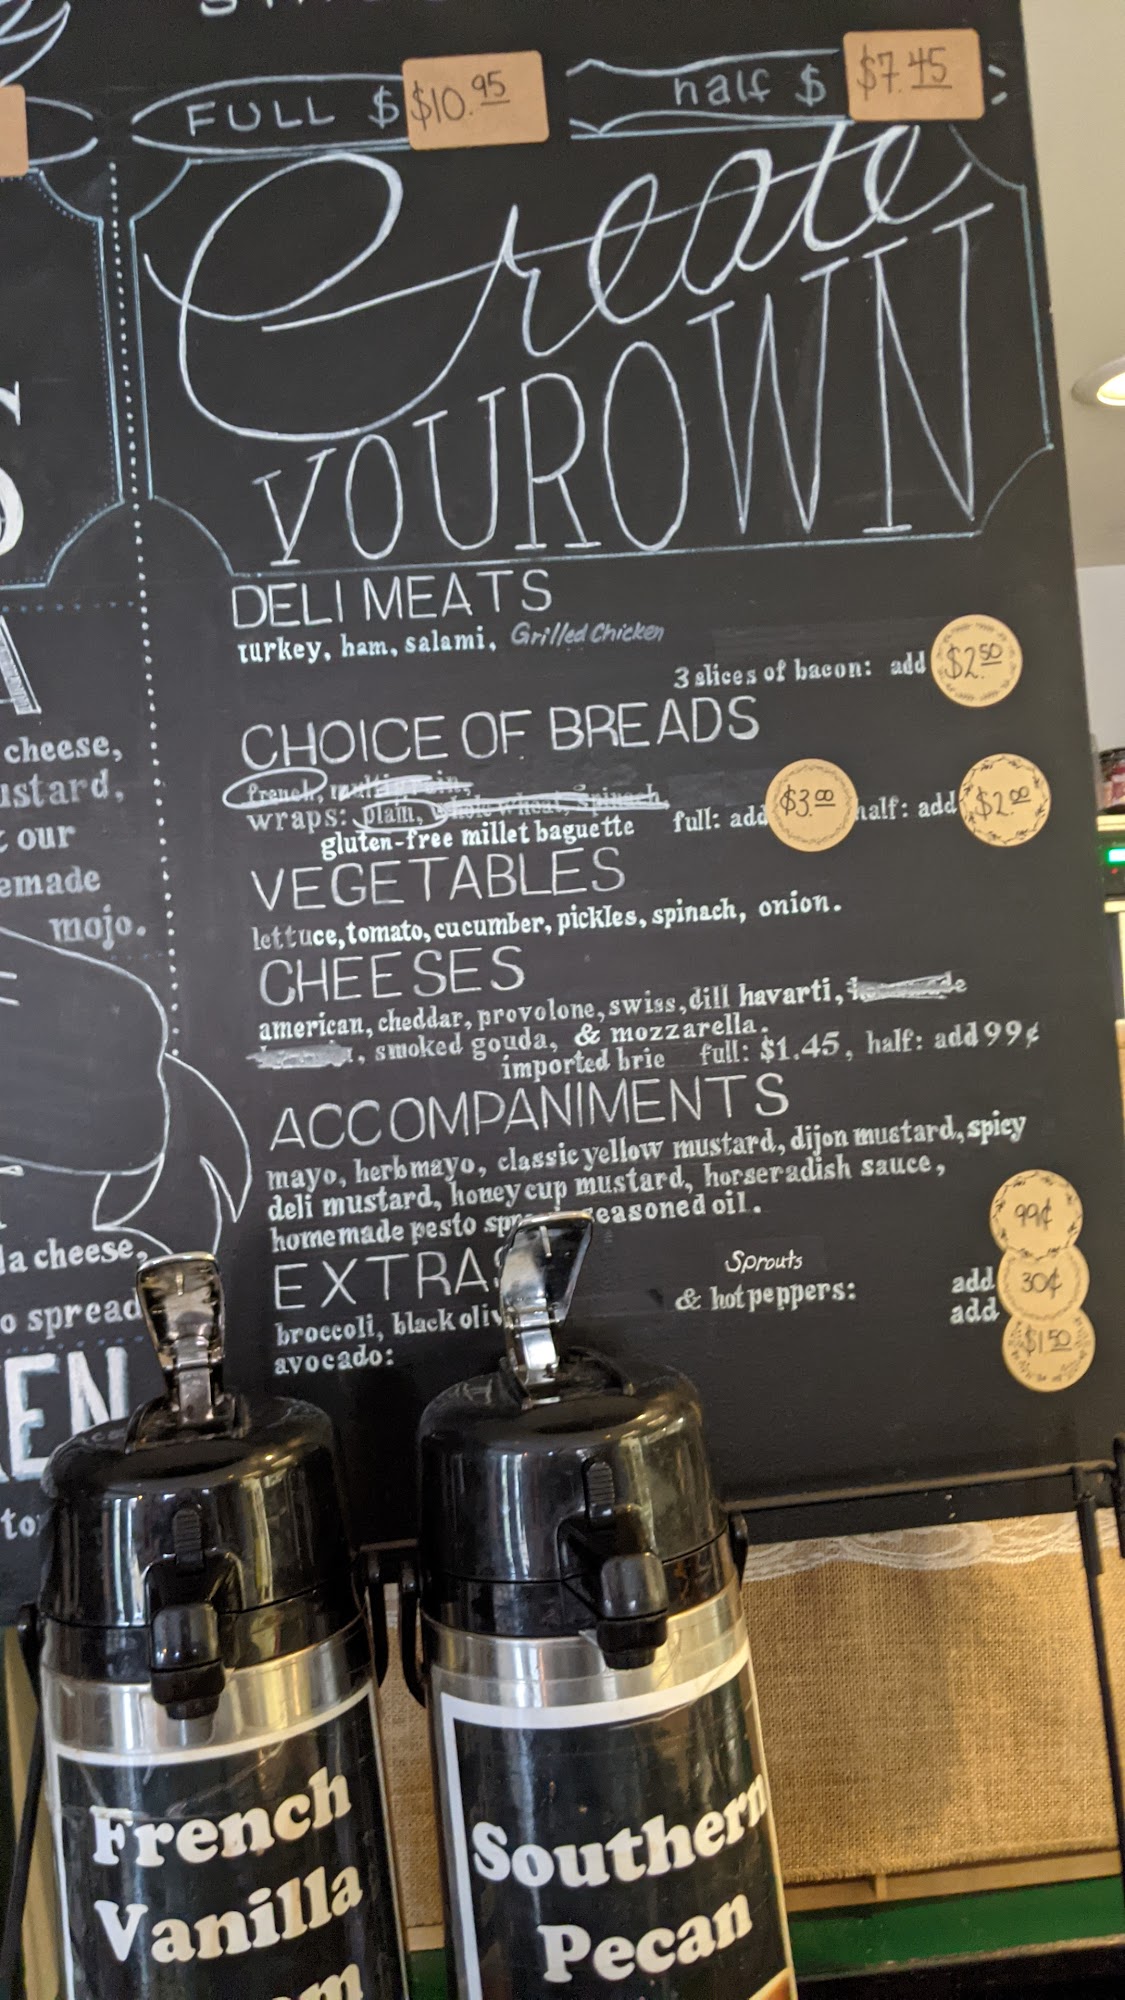 FULL $ $10.95
half $ $7.45
Create
YOUR OWN
DELI MEATS
turkey, ham, salami, Grilled Chicken
3 slices of bacon: add $2.50
CHOICE OF BREADS
french,
wraps: plain, whole wheat, spinach,
gluten-free millet baguette full: add $3.00 half: add $2.00
VEGETABLES
lettuce, tomato, cucumber, pickles, spinach, onion.
CHEESES
american, cheddar, provolone, swiss, dill havarti,
smoked gouda, & mozzarella.
imported brie full: $1.45, half: add 99¢
ACCOMPANIMENTS
mayo, herb mayo, classic yellow mustard, dijon mustard, spicy
deli mustard, honey cup mustard, horseradish sauce,
homemade pesto seasoned oil.
EXTRAS
99¢
broccoli, black Sprouts & hot peppers: add 30¢
avocado: add $1.50
cheese,
our
mojo.
cheese,
spread
French
Vanilla
Southern
Pecan